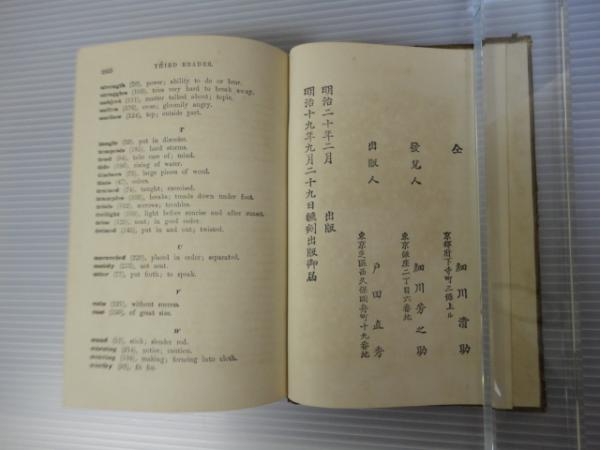 THIRD READER.
strength (26), power; ability to do or bear.
struggles (103), tries very hard to break away.
subject (111), matter talked about; topic.
sullen (176), cross; gloomily angry.
surface (124), top; outside part.
T
put in disorder.
hard storms.
tend (84), take care of; mind.
tide rising of water.
large pieces of wood.
colors.
trained (74), taught; exercised.
breaks; treads down under foot.
sorrows; troubles.
twilight light before sunrise and after sunset.
neat; in good order.
twined put in and out; twisted.
U
placed in order; separated.
not neat.
utter put forth; to speak.
V
vain without success.
vast of great size.
W
wand stick; slender rod.
warning notice; caution.
weaving making; forming into cloth.
worthy fit for.
明治十九年九月二十九日飜刻出版御届
明治二十年二月 出版
出版人 戸田直秀
東京芝區西久保國舟町十九番地
發兌人 細川芳之助
東京銀座二丁目六番地
仝 細川清助
京都府下寺町二條上ル